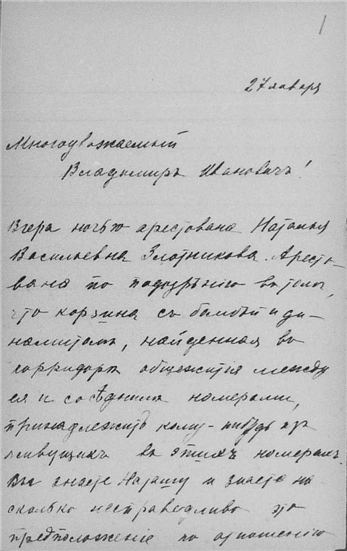 1
27 января
Многоуважаемый
Владимиръ Ивановичъ!
Вчера ночью арестована Наталья
Васильевна Злотникова. Аресто-
вана по подозрѣнію въ томъ,
что корзина съ бомбой и ди-
намитомъ, найденная въ
корридорѣ общежитія между
ея и сосѣдними номерами,
принадлежитъ кому-нибудь изъ
живущихъ въ этихъ номерахъ.
Вы знаете Наташу и знаете на
сколько несправедливо это
предположеніе по отношенію